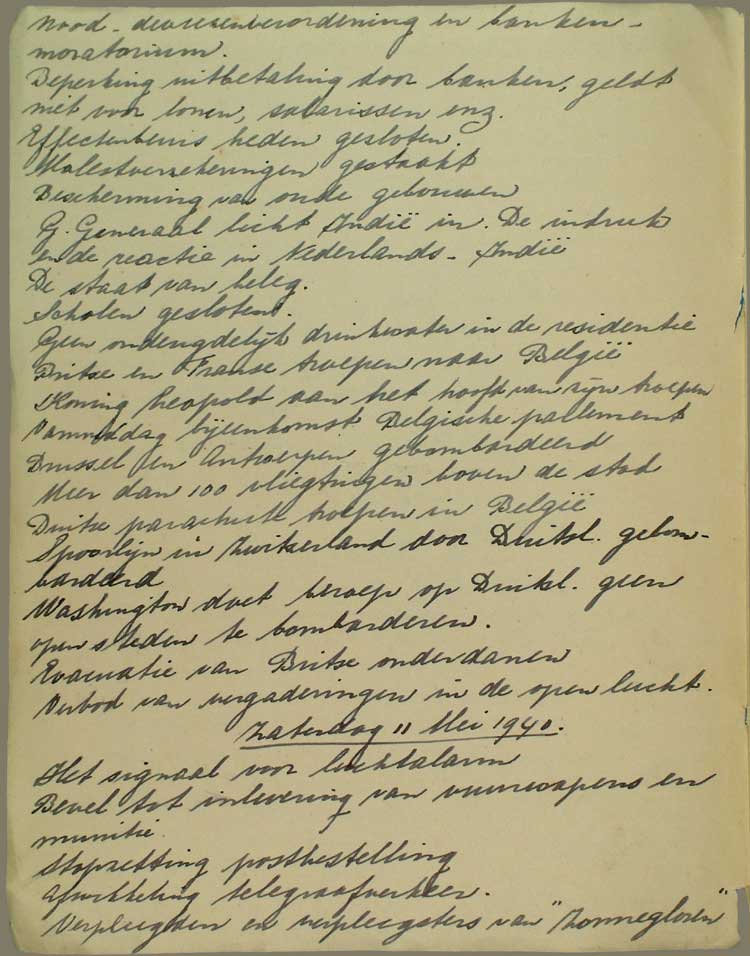 Nood-deviezenverordening en banken-
moratorium.
Beperking uitbetaling door banken, geldt
niet voor lonen, salarissen enz.
Effectenbeurs heden gesloten.
Molestverzekeringen gestaakt
Bescherming van oude gebouwen
G. Generaal licht Indië in. De indruk
en de reactie in Nederlands-Indië
De staat van beleg.
Scholen gesloten.
Geen ondeugdelijk drinkwater in de residentie
Britse en Franse troepen naar België
Koning Leopold aan het hoofd van zijn troepen
Vanmiddag bijeenkomst Belgische parlement
Brussel en Antwerpen gebombardeerd
Meer dan 100 vliegtuigen boven de stad
Duitse parachute troepen in België
Spoorlijn in Zwitserland door Duitsl. gebom-
bardeerd
Washington doet beroep op Duitsl. geen
open steden te bombarderen.
Evacuatie van Britse onderdanen
Verbod van vergaderingen in de open lucht.
Zaterdag 11 Mei 1940.
Het signaal voor luchtalarm
Bevel tot inlevering van vuurwapens en
munitie.
Stopzetting postbestelling
Afwikkeling telegraafverkeer.
Verpleegden en verpleegsters van "Zonnegloren"